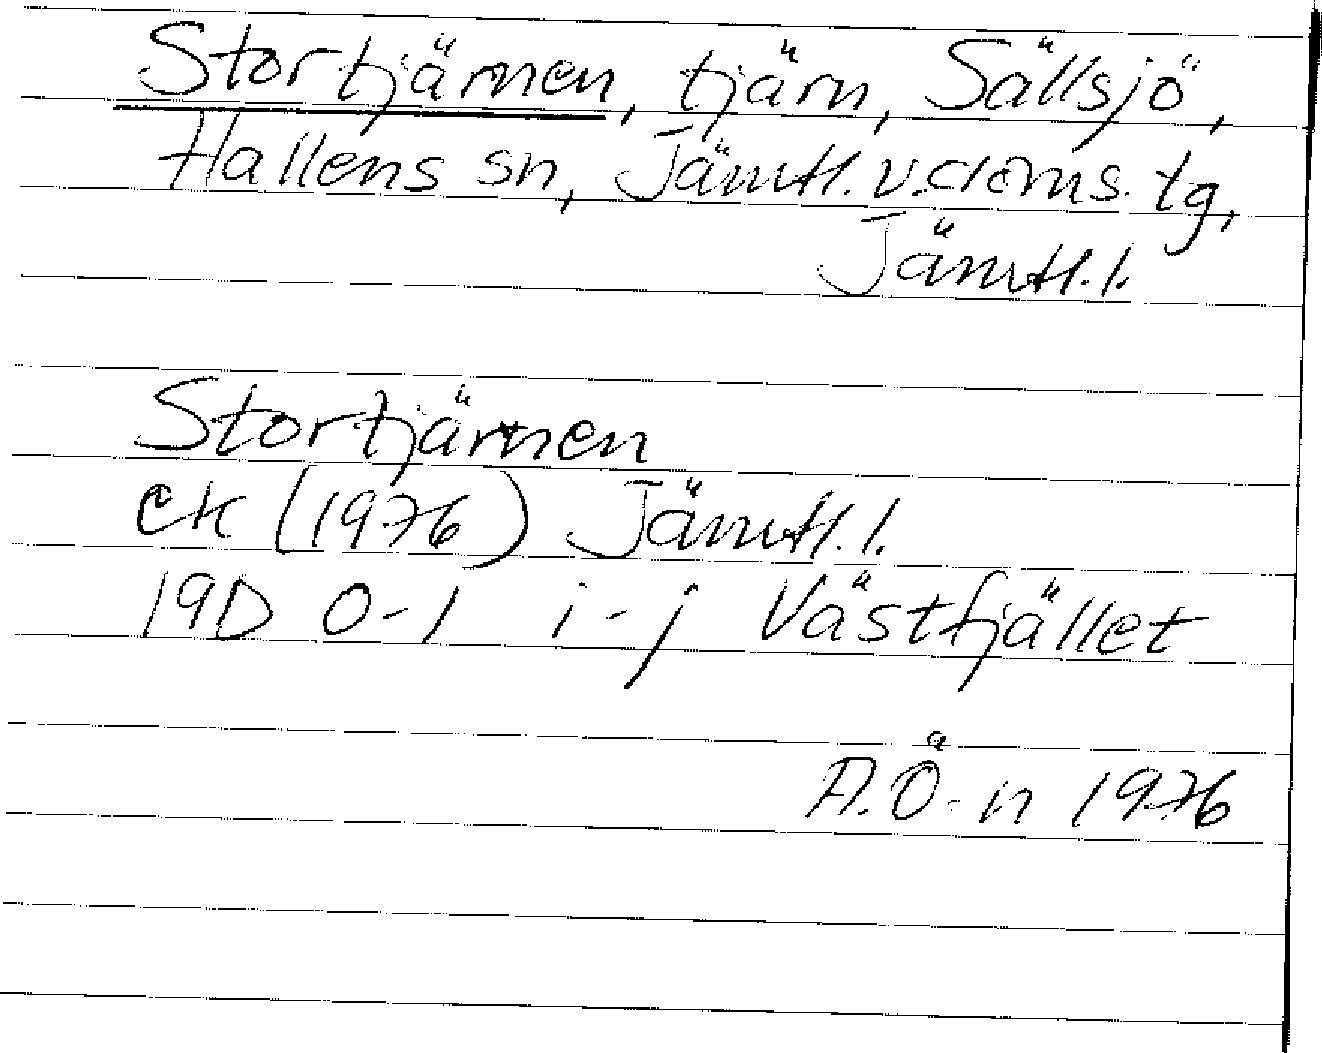 Stortjärnen, tjärn, Sällsjö,
Hallens sn, Jämtl. v. doms. tg,
Jämtl. l.
Stortjärnen
ek (1976) Jämtl. l.
19D 0-1 i-j Västfjället
A.Ö-n 1976